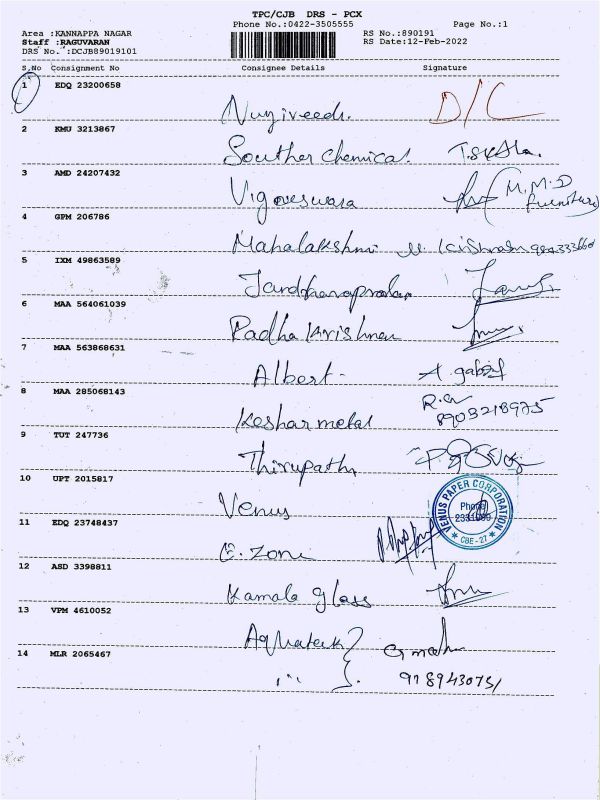 TPC/CJB DRS - PCX
Phone No.:0422-3505555 Page No.:1
Area :KANNAPPA NAGAR RS No.:890191
Staff :RAGUVARAN RS Date:12-Feb-2022
DRS No. :DCJB89019101
S.No Consignment No Consignee Details Signature
1 EDQ 23200658
D/C
2 KMU 3213867
Souther chemical.
3 AMD 24207432
Vigneswara M.M.D
furniture
4 GPM 206786
Mahalakshmi
5 IXM 49863589
6 MAA 564061039
Radha Krishnan
7 MAA 563868631
Albert-
8 MAA 285068143
Keshar metal 8903218975
9 TUT 247736
Thirupathi
10 UPT 2015817
Venus
VENUS PAPER CORPORATION
Phone
CBE-27
11 EDQ 23748437
E. Zone
12 ASD 3398811
Kamala glass
13 VPM 4610052
Aquatech
14 MLR 2065467